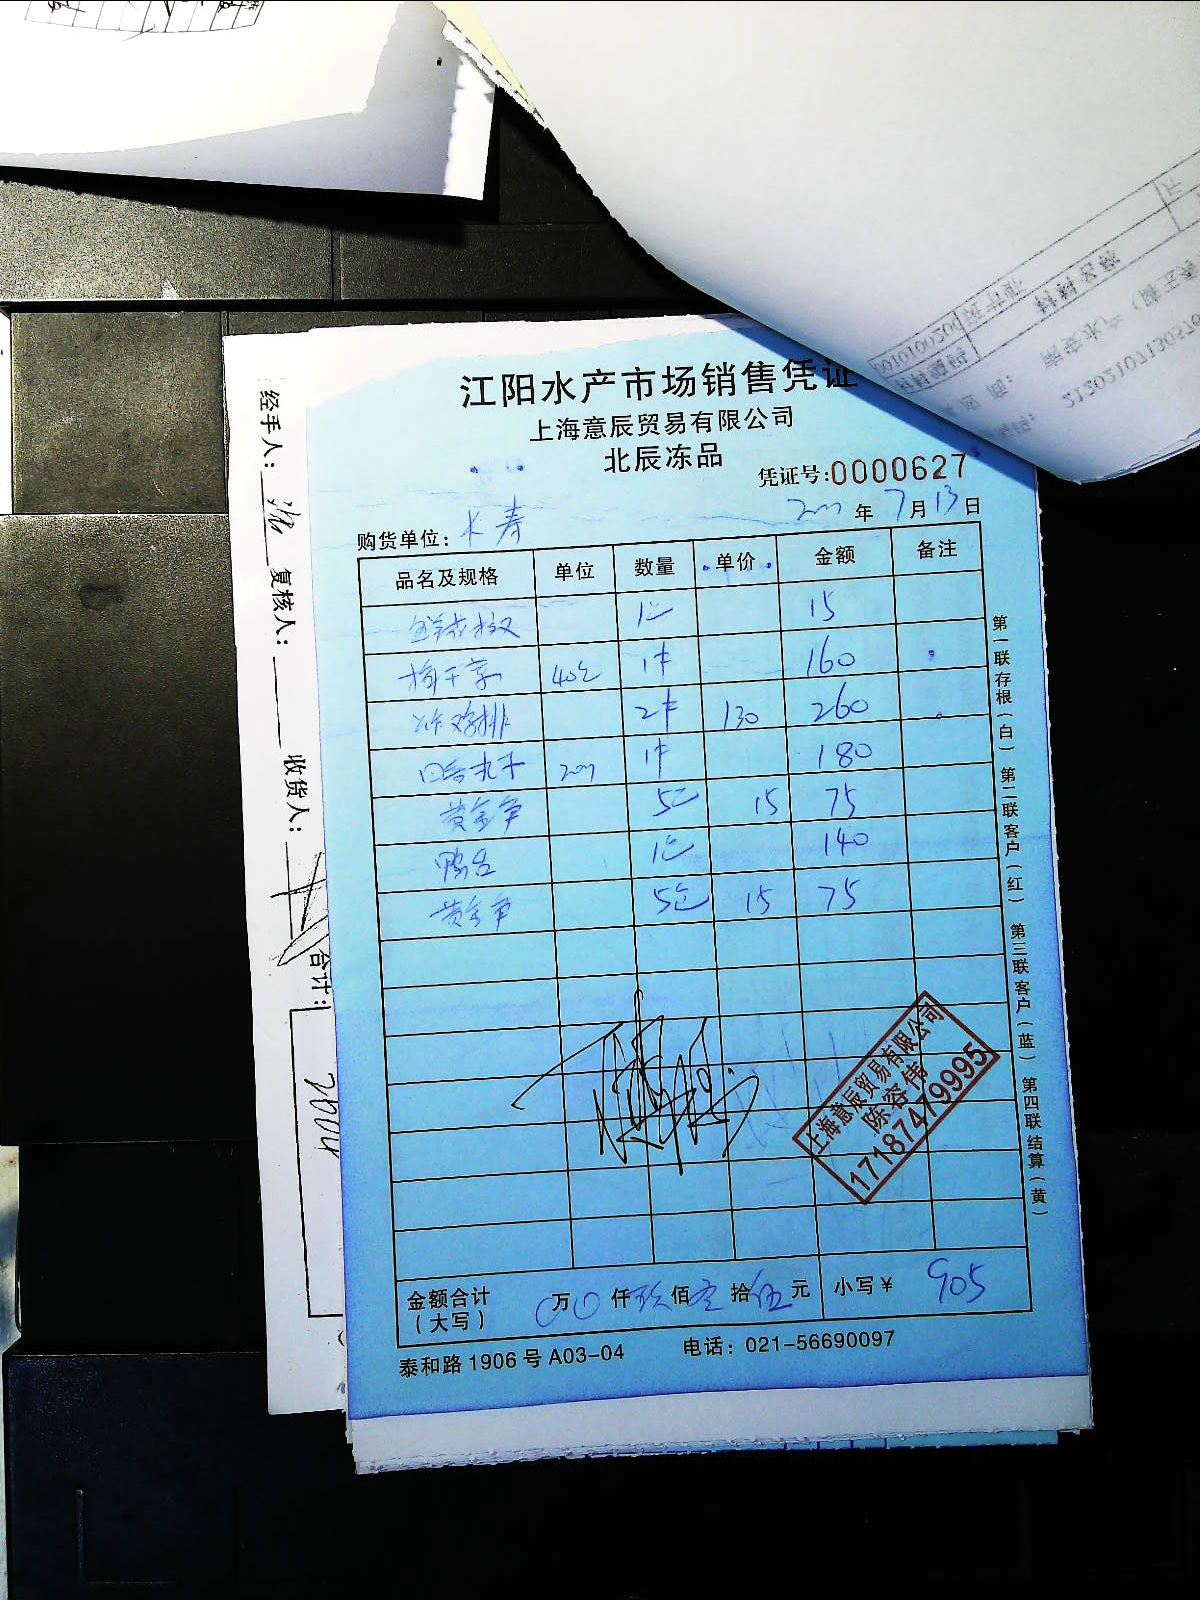 江阳水产市场销售凭证
上海意辰贸易有限公司
北辰冻品
凭证号:0000627
年 7月13日
购货单位: 长寿
品名及规格 单位 数量 单价 金额 备注
鲜花椒 1包 15
梅干菜 40包 1件 160
炸鸡排 2件 130 260
四喜丸子 1件 180
黄金 5包 15 75
鸭舌 1包 140
黄金 5包 15 75
上海意辰贸易有限公司
陈容伟
17187479995
金额合计 〇万〇仟玖佰零拾伍元 小写¥ 905
（大写）
泰和路1906号A03-04 电话：021-56690097
第一联存根（白） 第二联客户（红） 第三联客户（蓝） 第四联结算（黄）
经手人： 复核人： 收货人：
合计：
材料名称